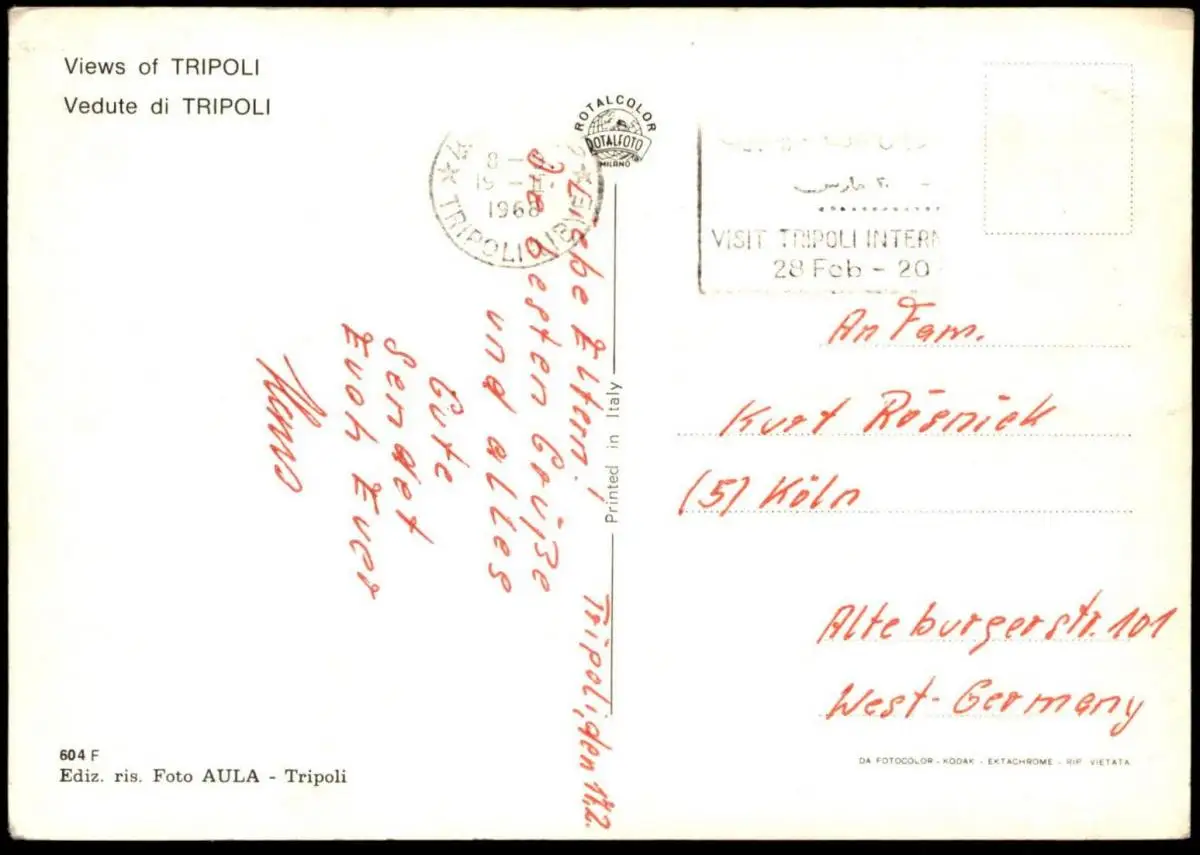 Views of TRIPOLI
Vedute di TRIPOLI
ROTALCOLOR
ROTALFOTO
MILANO
8 -
19 - II.
1968
TRIPOLI
٢٠ مارس
VISIT TRIPOLI INTERN
28 Feb - 20
Tripoli, den 17.2.
Liebe Eltern!
Die besten Grüße
und alles
Gute
sendet
Euch Euer
An Fam.
Kurt Rösnick
(5) Köln
Alteburgerstr. 101
West-Germany
Printed in Italy
604 F
Ediz. ris. Foto AULA - Tripoli
DA FOTOCOLOR - KODAK - EKTACHROME - RIP. VIETATA